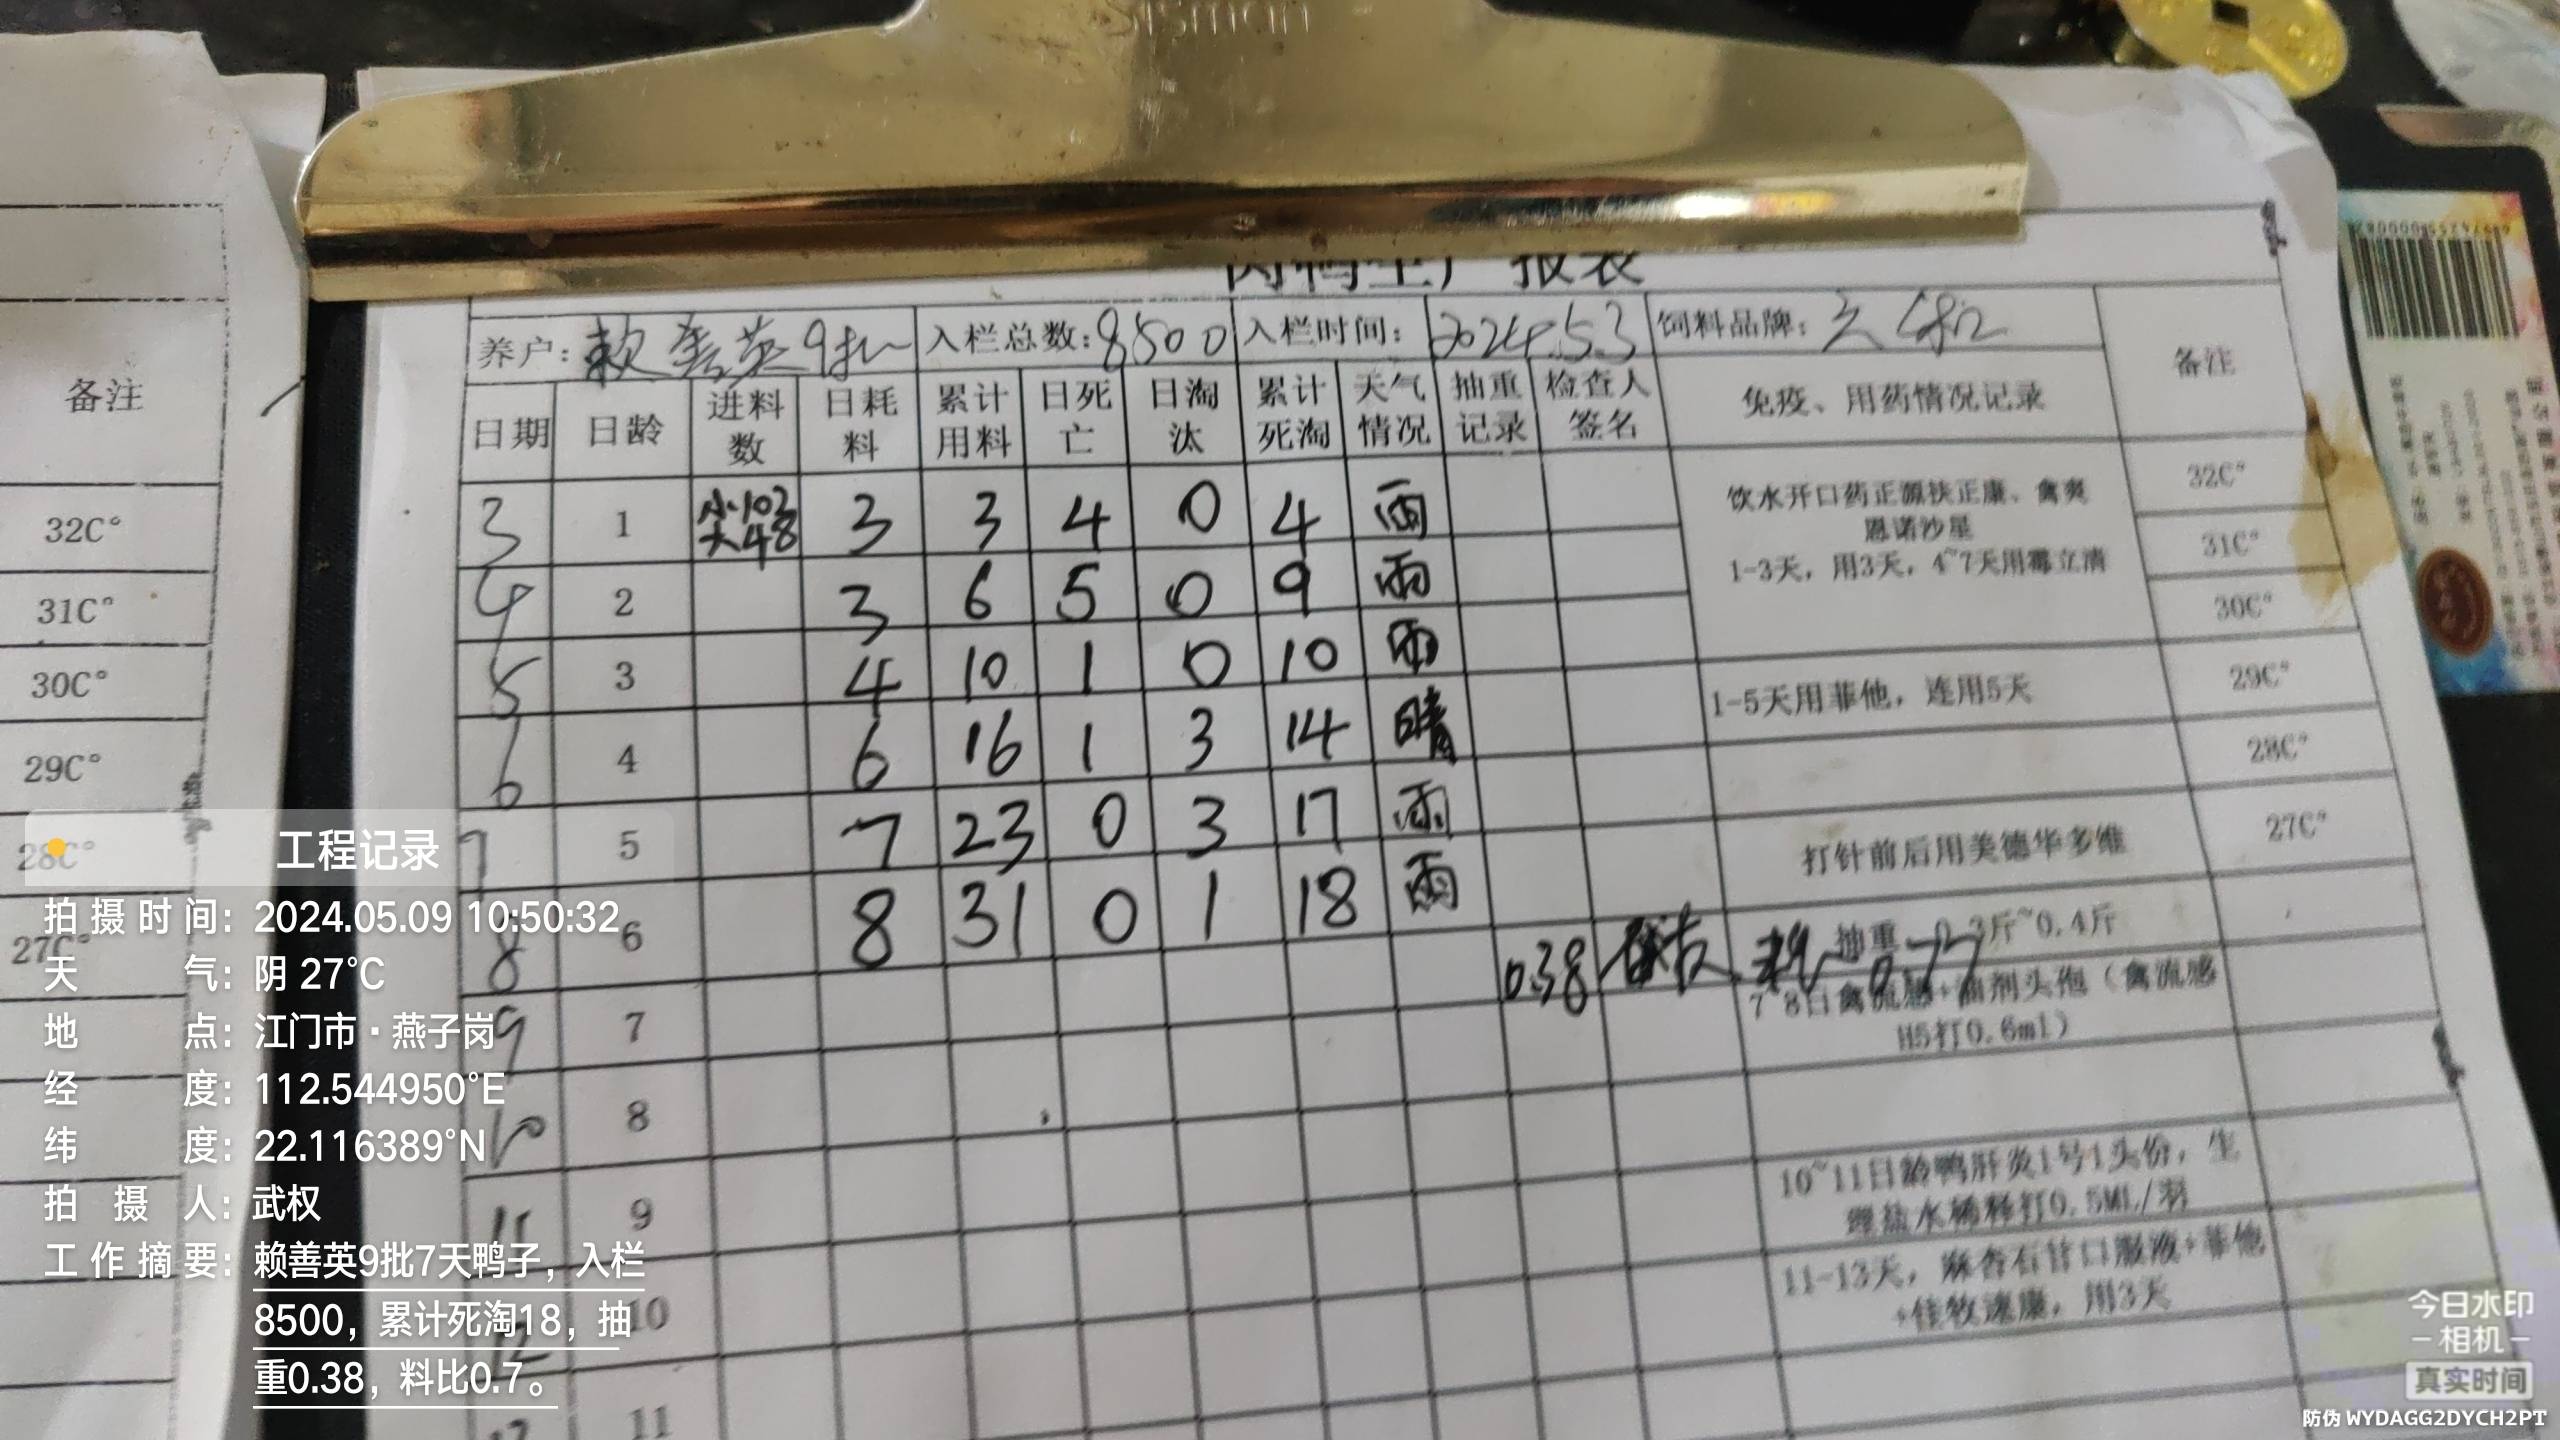 sismon
肉鸭生产报表
养户：赖善英9批 入栏总数：8500 入栏时间：2024.5.3 饲料品牌： 备注
日期 日龄 进料数 日耗料 累计用料 日死亡 日淘汰 累计死淘 天气情况 抽重记录 检查人签名 免疫、用药情况记录
3 1 小103 大48 3 3 4 0 4 雨 32C°
饮水开口药正源扶正康、禽爽
恩诺沙星
1-3天，用3天，4~7天用霉立清
4 2 3 6 5 0 9 雨 31C°
5 3 4 10 1 0 10 雨 30C°
6 4 6 16 1 3 14 晴 1-5天用菲他，连用5天 29C°
7 5 7 23 0 3 17 雨 28C°
8 6 8 31 0 1 18 雨 打针前后用美德华多维 27C°
9 7 0.38 武权 料 0.77 抽重 0.3斤~0.4斤
7~8日禽流感+油剂头孢（禽流感
H5打0.6ml）
10 8
11 9 10~11日龄鸭肝炎1号1头份，生
理盐水稀释打0.5ML/羽
12 10 11-13天，麻杏石甘口服液+菲他
+佳牧速康，用3天
11
备注
32C°
31C°
30C°
29C°
28C°
27C°
工程记录
拍摄时间：2024.05.09 10:50:32
天气：阴 27°C
地点：江门市·燕子岗
经度：112.544950°E
纬度：22.116389°N
拍摄人：武权
工作摘要：赖善英9批7天鸭子，入栏
8500，累计死淘18，抽
重0.38，料比0.7。
今日水印
相机
真实时间
防伪 WYDAGG2DYCH2PT